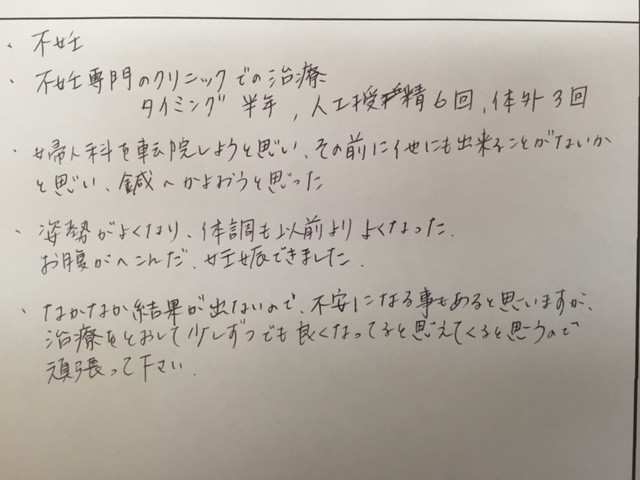 ・不妊
・不妊専門のクリニックでの治療
タイミング 半年, 人工授精6回, 体外3回
・婦人科を転院しようと思い、その前に他にも出来ることがないか
と思い、鍼へかよおうと思った
・姿勢がよくなり、体調も以前よりよくなった.
お腹がへこんだ. 妊娠できました.
・なかなか結果が出ないので、不安になる事もあると思いますが、
治療をとおして少しずつでも良くなってると思えてくると思うので
頑張って下さい.